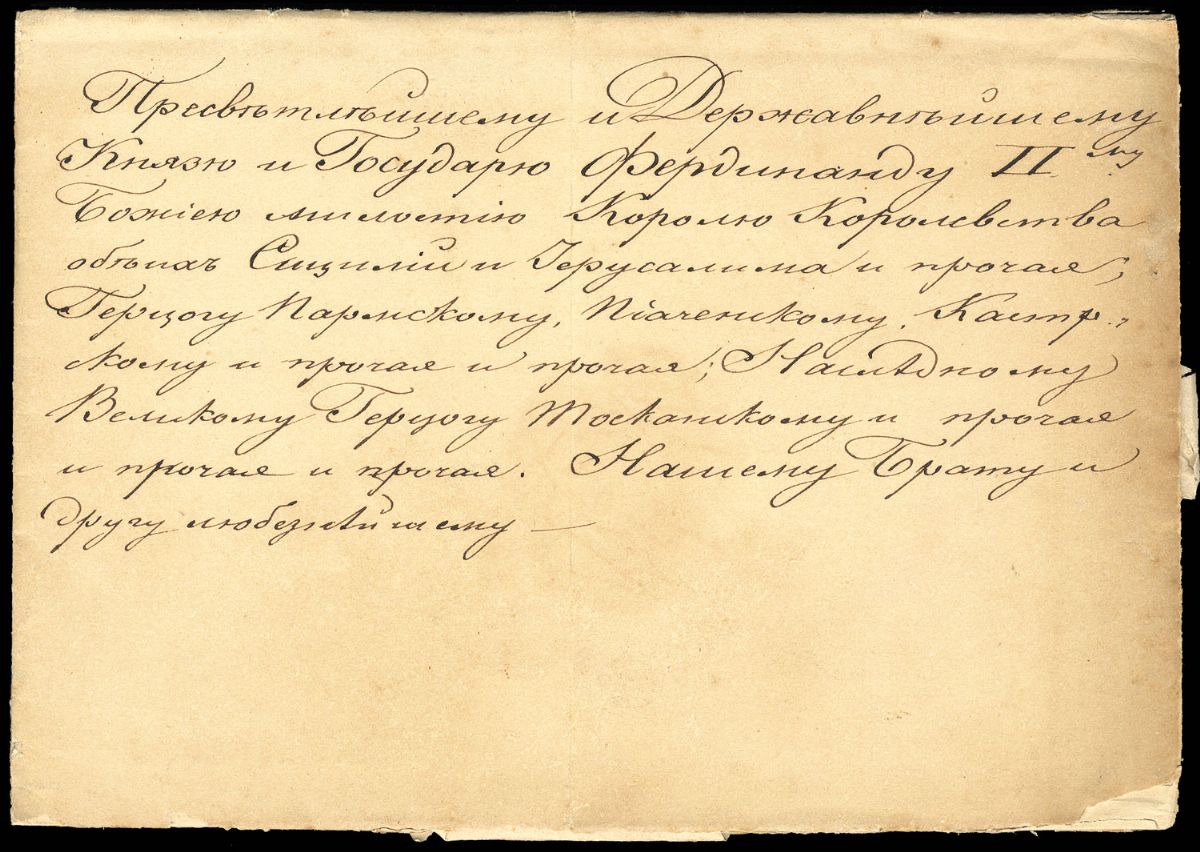 Пресвѣтлѣйшему и Державнѣйшему
Князю и Государю Фердинанду II му
Божіею милостію Королю Королевства
обѣихъ Сицилій и Іерусалима и прочая;
Герцогу Пармскому, Піаченскому, Кастр-
скому и прочая и прочая; Наслѣдному
Великому Герцогу Тосканскому и прочая
и прочая и прочая. Нашему Брату и
другу любезнѣйшему —